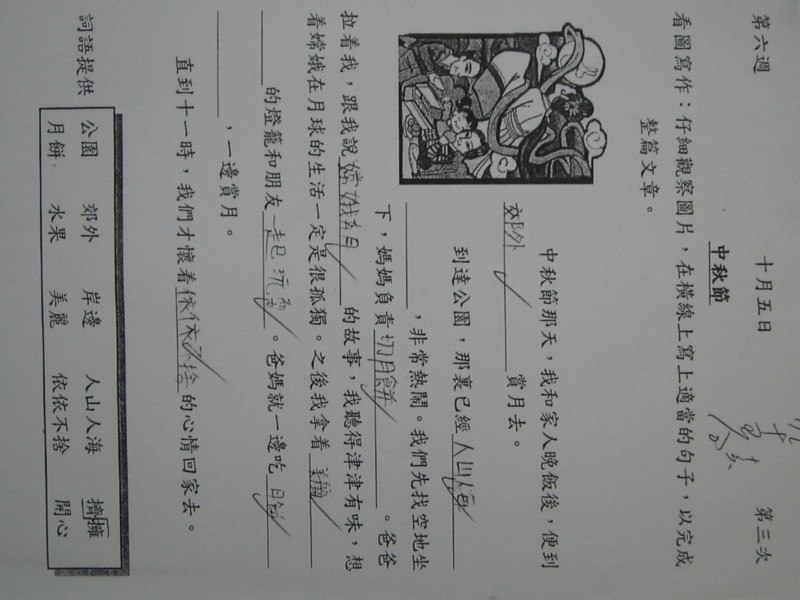 第六週 十月五日 第三次
中秋節
看圖寫作：仔細觀察圖片，在橫線上寫上適當的句子，以完成
整篇文章。
中秋節那天，我和家人晚飯後，便到
郊外 賞月去。
到達公園，那裏已經人山人海
，非常熱鬧。我們先找空地坐
下，媽媽負責切月餅 。爸爸
拉着我，跟我說嫦娥奔月 的故事，我聽得津津有味，想
着嫦娥在月球的生活一定是很孤獨。之後我拿着美麗
的燈籠和朋友一起玩耍。爸媽就一邊吃月餅
，一邊賞月。
直到十一時，我們才懷着依依不捨的心情回家去。
詞語提供
公園 郊外 岸邊 人山人海 擠擁
月餅 水果 美麗 依依不捨 開心